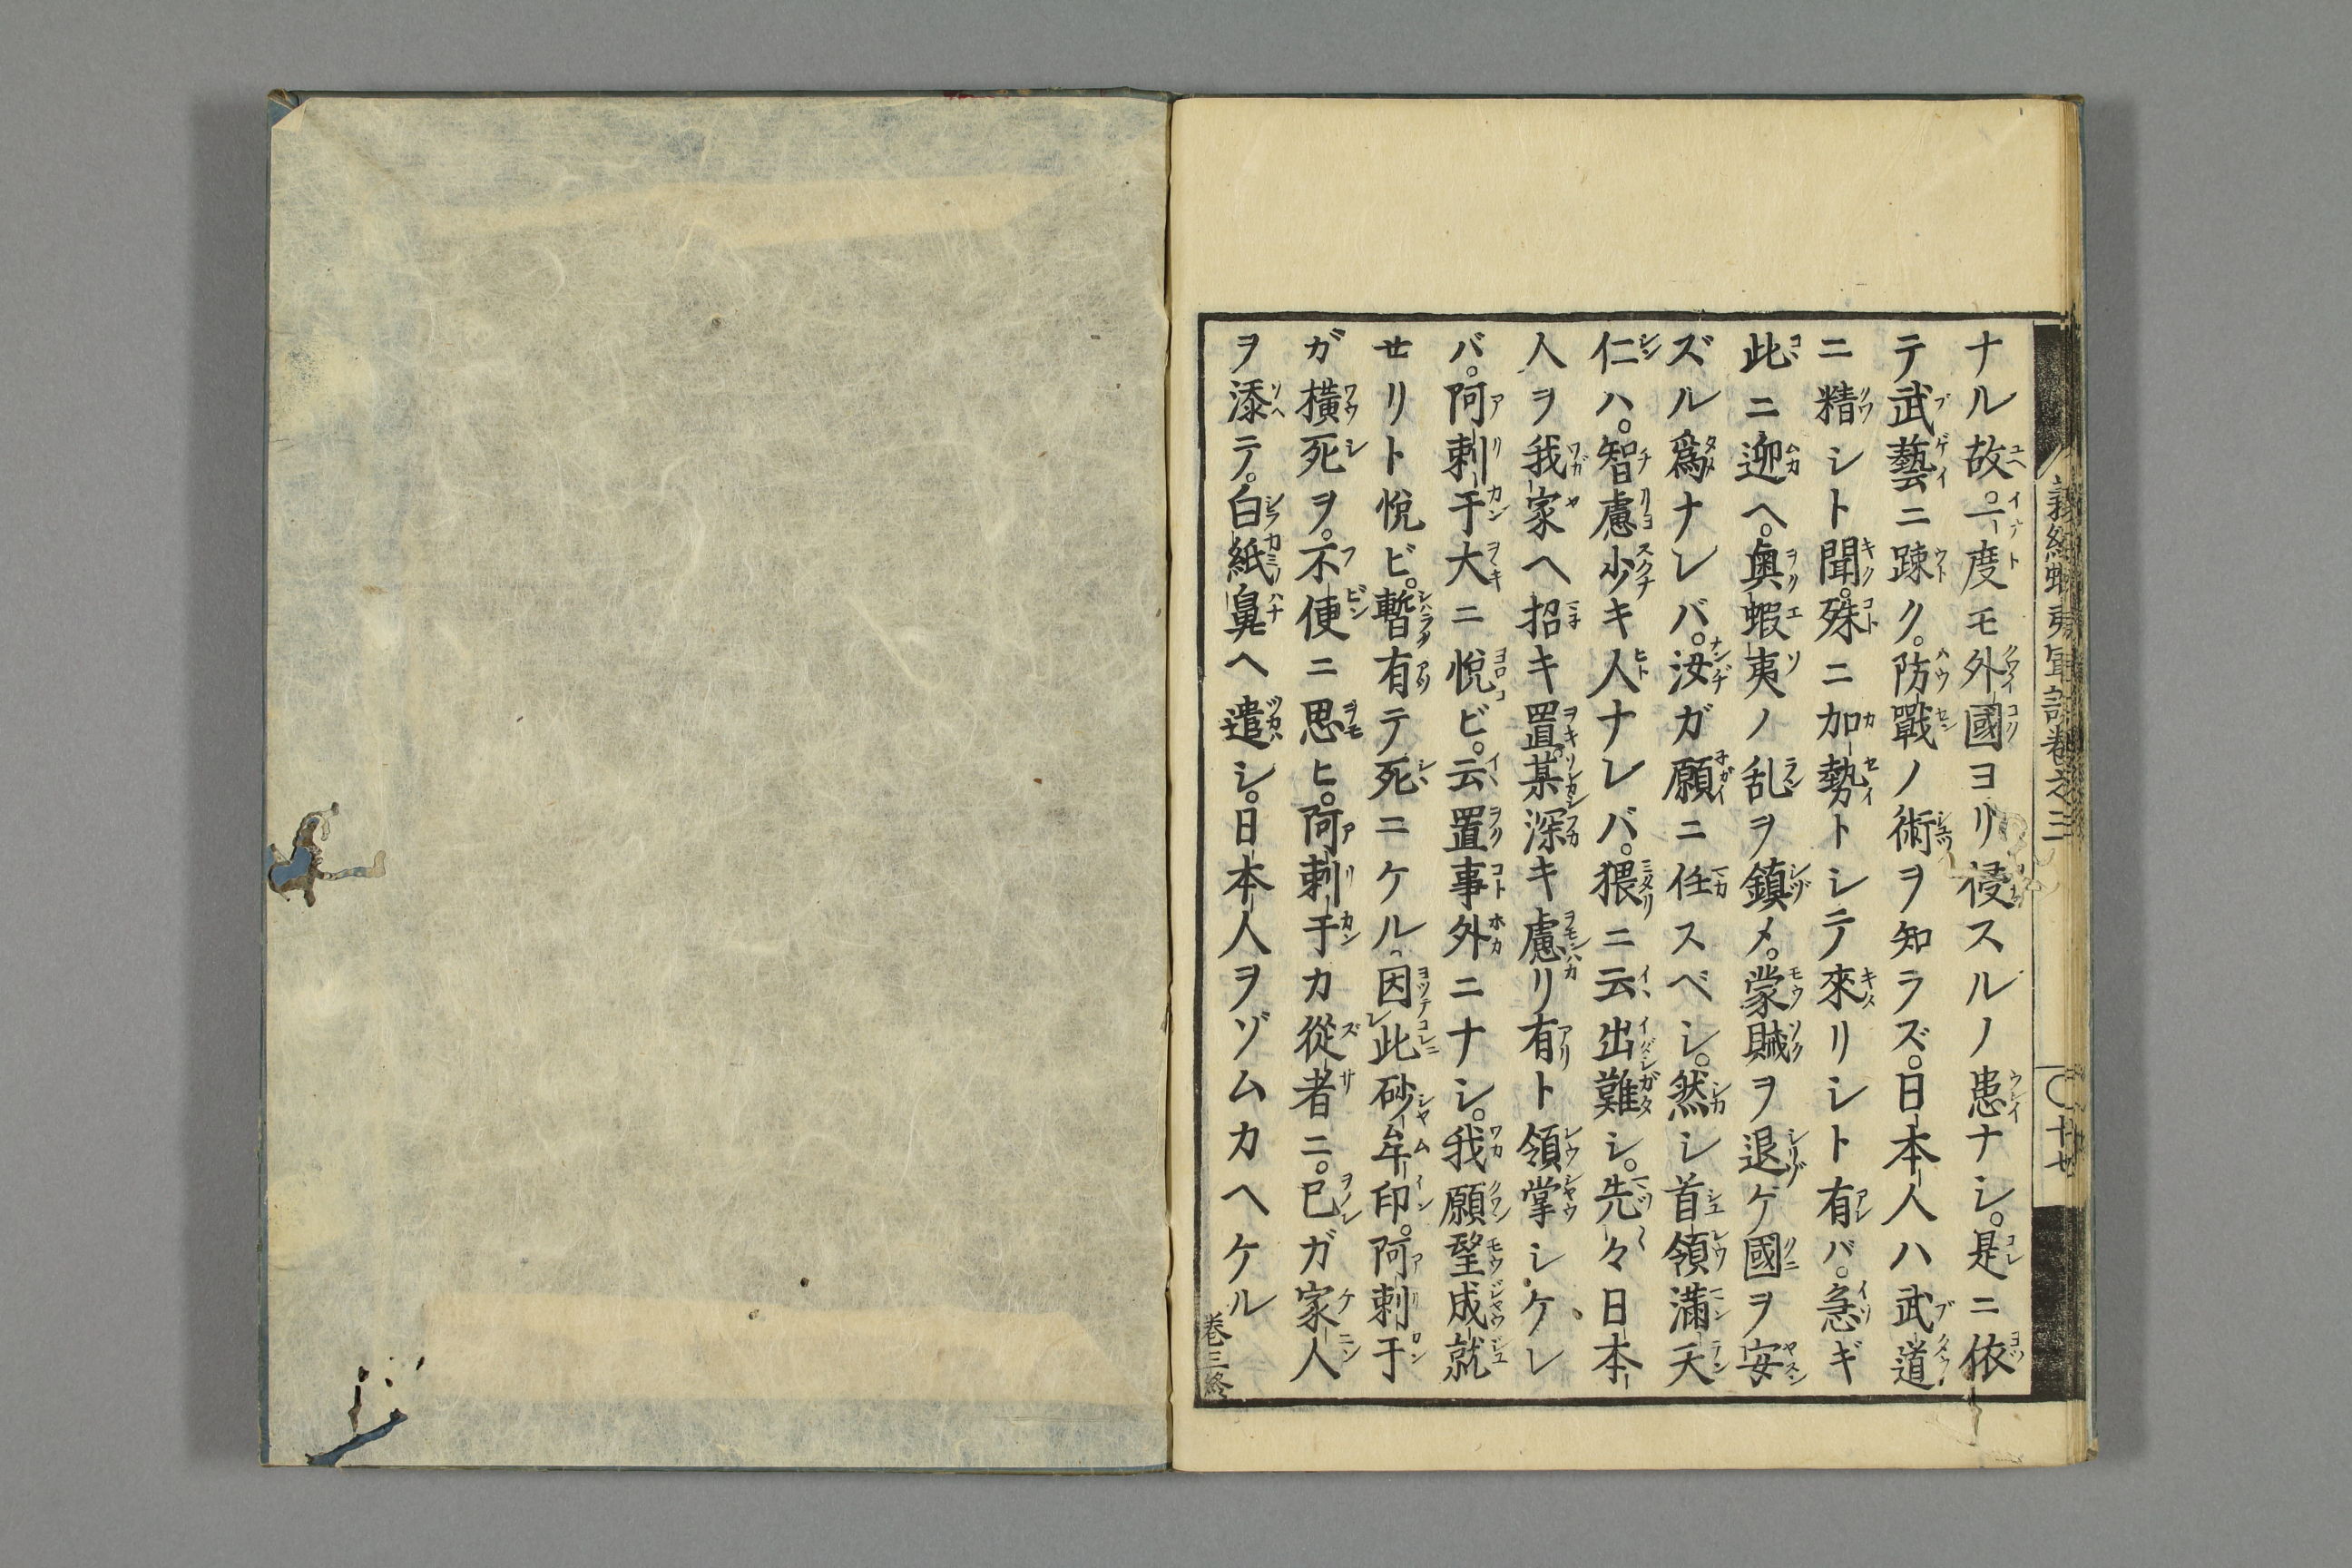 ナル故。一度モ外國ヨリ侵スルノ患ナシ。是ニ依
テ武藝ニ踈ク。防戰ノ術ヲ知ラズ。日本人ハ武道
ニ精シト聞。殊ニ加勢トシテ來リシト有バ。急ギ
此ニ迎ヘ。奥蝦夷ノ乱ヲ鎮メ。蒙賊ヲ退ケ國ヲ安
ズル爲ナレバ。汝ガ願ニ任スベシ。然シ首領満天
仁ハ。智慮少キ人ナレバ。猥ニ云出難シ。先々日本
人ヲ我家ヘ招キ置。某深キ慮リ有ト領掌シケレ
バ。阿剌干大ニ悦ビ。云置事外ニナシ。我願望成就
せリト悦ビ。暫有テ死ニケル。因此砂牟印。阿剌干
ガ横死ヲ。不便ニ思ヒ。阿剌干カ從者ニ。己ガ家人
ヲ添テ。白紙鼻ヘ遣シ。日本人ヲゾムカヘケル
巻三終
義經蝦夷軍談巻之三
十七